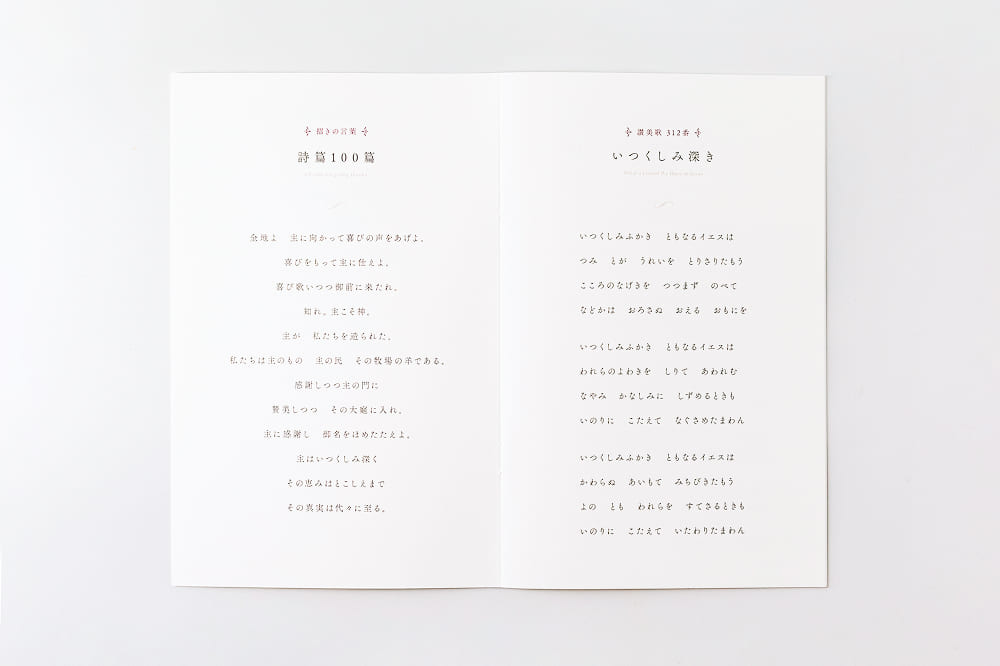 招きの言葉
詩篇100篇
全地よ　主に向かって喜びの声をあげよ。
喜びをもって主に仕えよ。
喜び歌いつつ御前に来たれ。
知れ。主こそ神。
主が　私たちを造られた。
私たちは主のもの　主の民　その牧場の羊である。
感謝しつつ主の門に
賛美しつつ　その大庭に入れ。
主に感謝し　御名をほめたたえよ。
主はいつくしみ深く
その恵みはとこしえまで
その真実は代々に至る。
讃美歌 312番
いつくしみ深き
いつくしみふかき　ともなるイエスは
つみ　とが　うれいを　とりさりたもう
こころのなげきを　つつまず　のべて
などかは　おろさぬ　おえる　おもにを
いつくしみふかき　ともなるイエスは
われらのよわきを　しりて　あわれむ
なやみ　かなしみに　しずめるときも
いのりに　こたえて　なぐさめたまわん
いつくしみふかき　ともなるイエスは
かわらぬ　あいもて　みちびきたもう
よの　とも　われらを　すてさるときも
いのりに　こたえて　いたわりたまわん